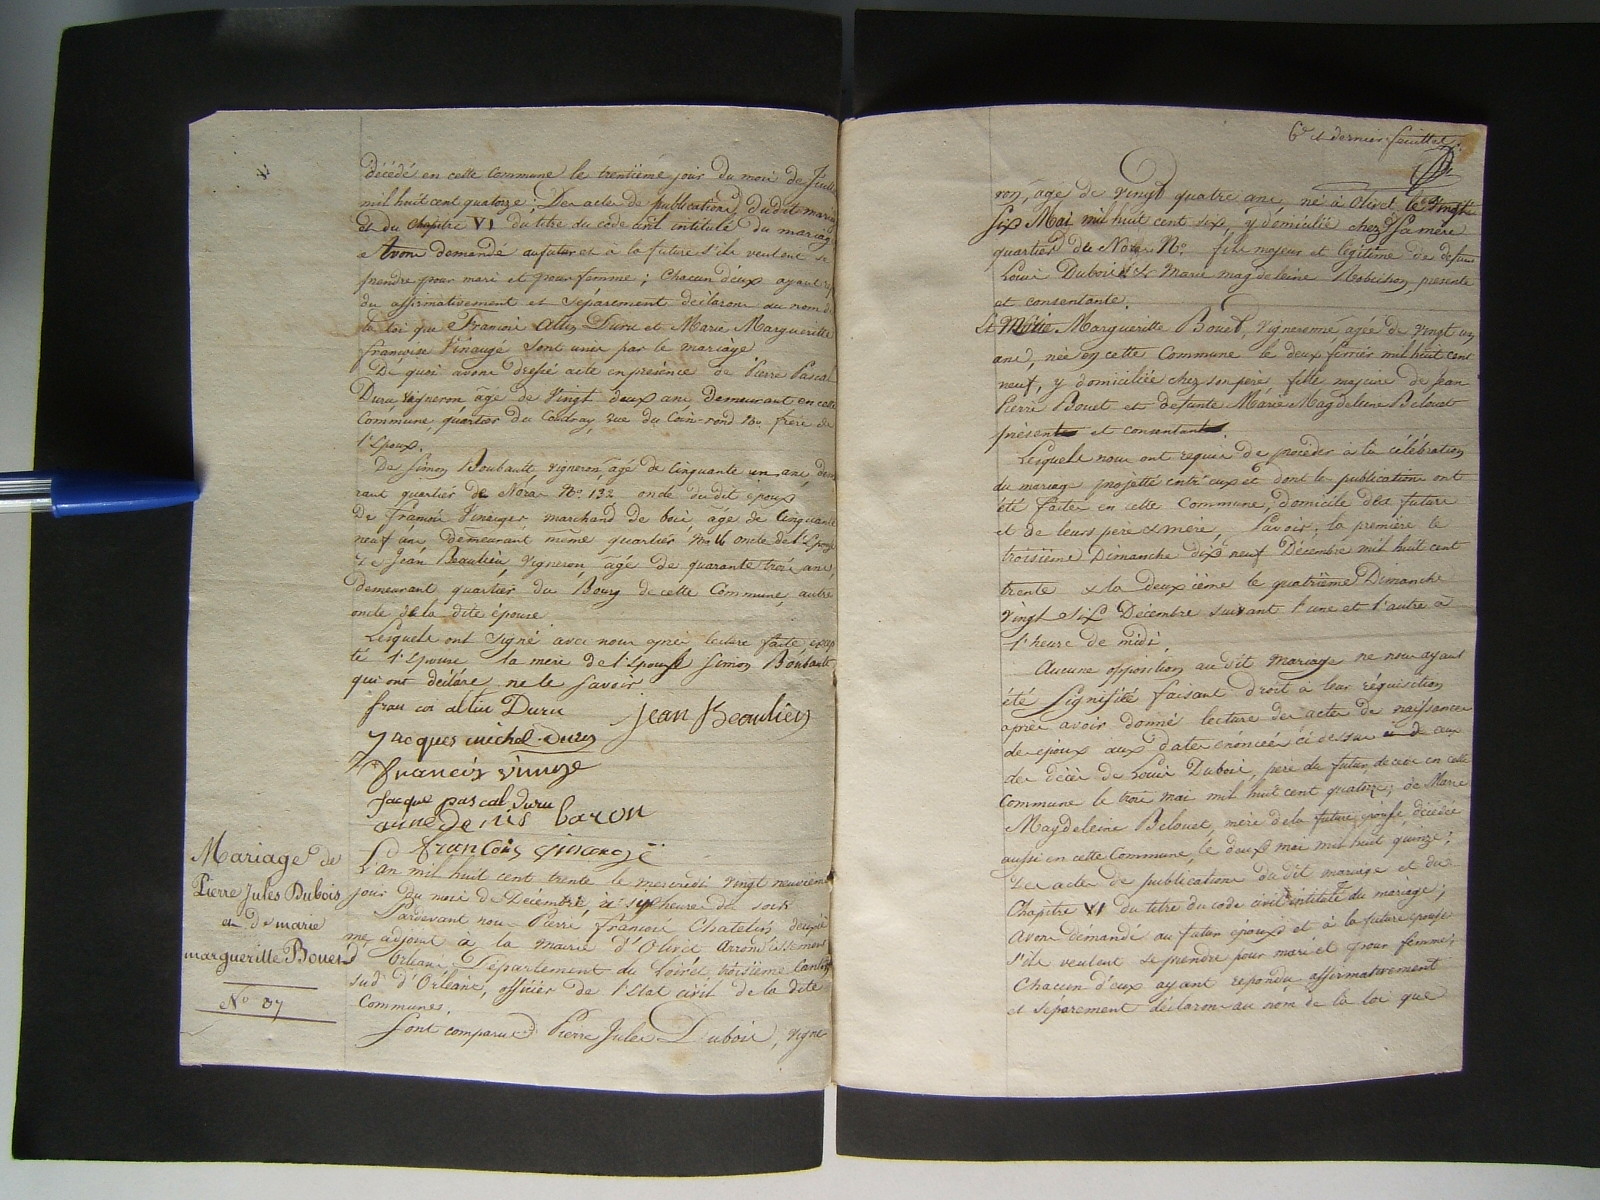 décédé en cette Commune le trentième jour du mois de Juillet
mil huit cent quatorze; Des actes de publications du dit mariage
et du Chapitre VI du titre du code civil intitulé du mariage
Avons demandé au futur et à la future s'ils veulent se
prendre pour mari et pour femme; Chacun d'eux ayant rép
du affirmativement et séparement declarons au nom de
la loi que François Duru et Marie Margueritte
françoise Vinaugé sont unis par le mariage
De quoi avons dressé acte en présence de Pierre Pascal
Duru Vigneron âgé de Vingt deux ans demeurant en cette
Commune, quartier du Coudray, rue du Coin-rond No. frère de
l'Epoux.
De Simon Boubault, Vigneron, agé de Cinquante un ans, demeu
rant quartier de Nôras No. 122 oncle du dit époux
De françois Vinauger marchand de bois, âgé de Cinquante
neuf ans demeurant même quartier No. 16 oncle de l'Epouse
De Jean Beaulieu, Vigneron, âgé de quarante trois ans,
demeurant quartier du Bourg de cette Commune, autre
oncle de la dite épouse
Lesquels ont signé avec nous après lecture faite, excep
té l'Epouse la mère de l'Epoux Simon Boubault
qui ont déclaré ne le savoir
Duru jean Beaulieu
Jacques michel Duru
francois vinoge
Jacque pascal duru
anne denis baron
francois
Mariage de
Pierre Jules Dubois
et De marie
marguerille Bouet
No 37
L'an mil huit cent trente le mercredi vingt neuvième
jour du mois de Décembre, à six heures du soir
Pardevant nous Pierre François Chatelin deuxiè
me adjoint à la mairie d'Olivet arrondissement
d'Orléans Département du Loiret troisième Canton
sud d'Orléans, officier de l'Etat civil de la dite
Communes,
Sont comparus Pierre Jules Dubois, vigne
6e et dernier feuillet
ron, âgé de Vingt quatre ans né à Olivet le Vingt
six Mai mil huit cent six, y domicilié chez sa mère
quartier de Nôras No. fils majeur et légitime de defunt
Louis Dubois et de Marie magdeleine Robichon, presente
et consentante.
Et Marie Margueritte Bouet, Vigneronne âgée de vingt un
ans, née en cette Commune le deux février mil huit cent
neuf, y domiciliée chez son père, fille majeure de Jean
Pierre Bouet et defunte Marie Magdeleine Belouet
présent et consentant
Lesquels nous ont requis de procéder à la célébration
du mariage projetté entr'eux et dont les publications ont
été faites en cette Commune, domicile des futurs
et de leurs père & mère, Savoir; la première le
troisième Dimanche dix neuf Décembre mil huit cent
trente & la deuxième le quatrième Dimanche
vingt six Décembre suivant l'une et l'autre à
l'heure de midi,
Aucune opposition au dit mariage ne nous ayant
été signifiée faisant droit à leur réquisition
après avoir donné lecture des actes de naissances
des époux aux dates énoncées ci dessus ceux
des décès de Louis Dubois, père du futur, decédé en cette
Commune le trois mai mil huit cent quatorze; de Marie
Magdeleine Belouet, mère de la future épouse décédée
aussi en cette Commune, le deux mai mil huit quinze;
Des actes de publications du dit mariage et du
Chapitre VI du titre du code civil intitulé du mariage;
Avons demandé au futur époux et à la future épouse
s'ils veulent se prendre pour mari et pour femme;
Chacun d'eux ayant repondu affirmativement
et séparement déclarons au nom de la loi que